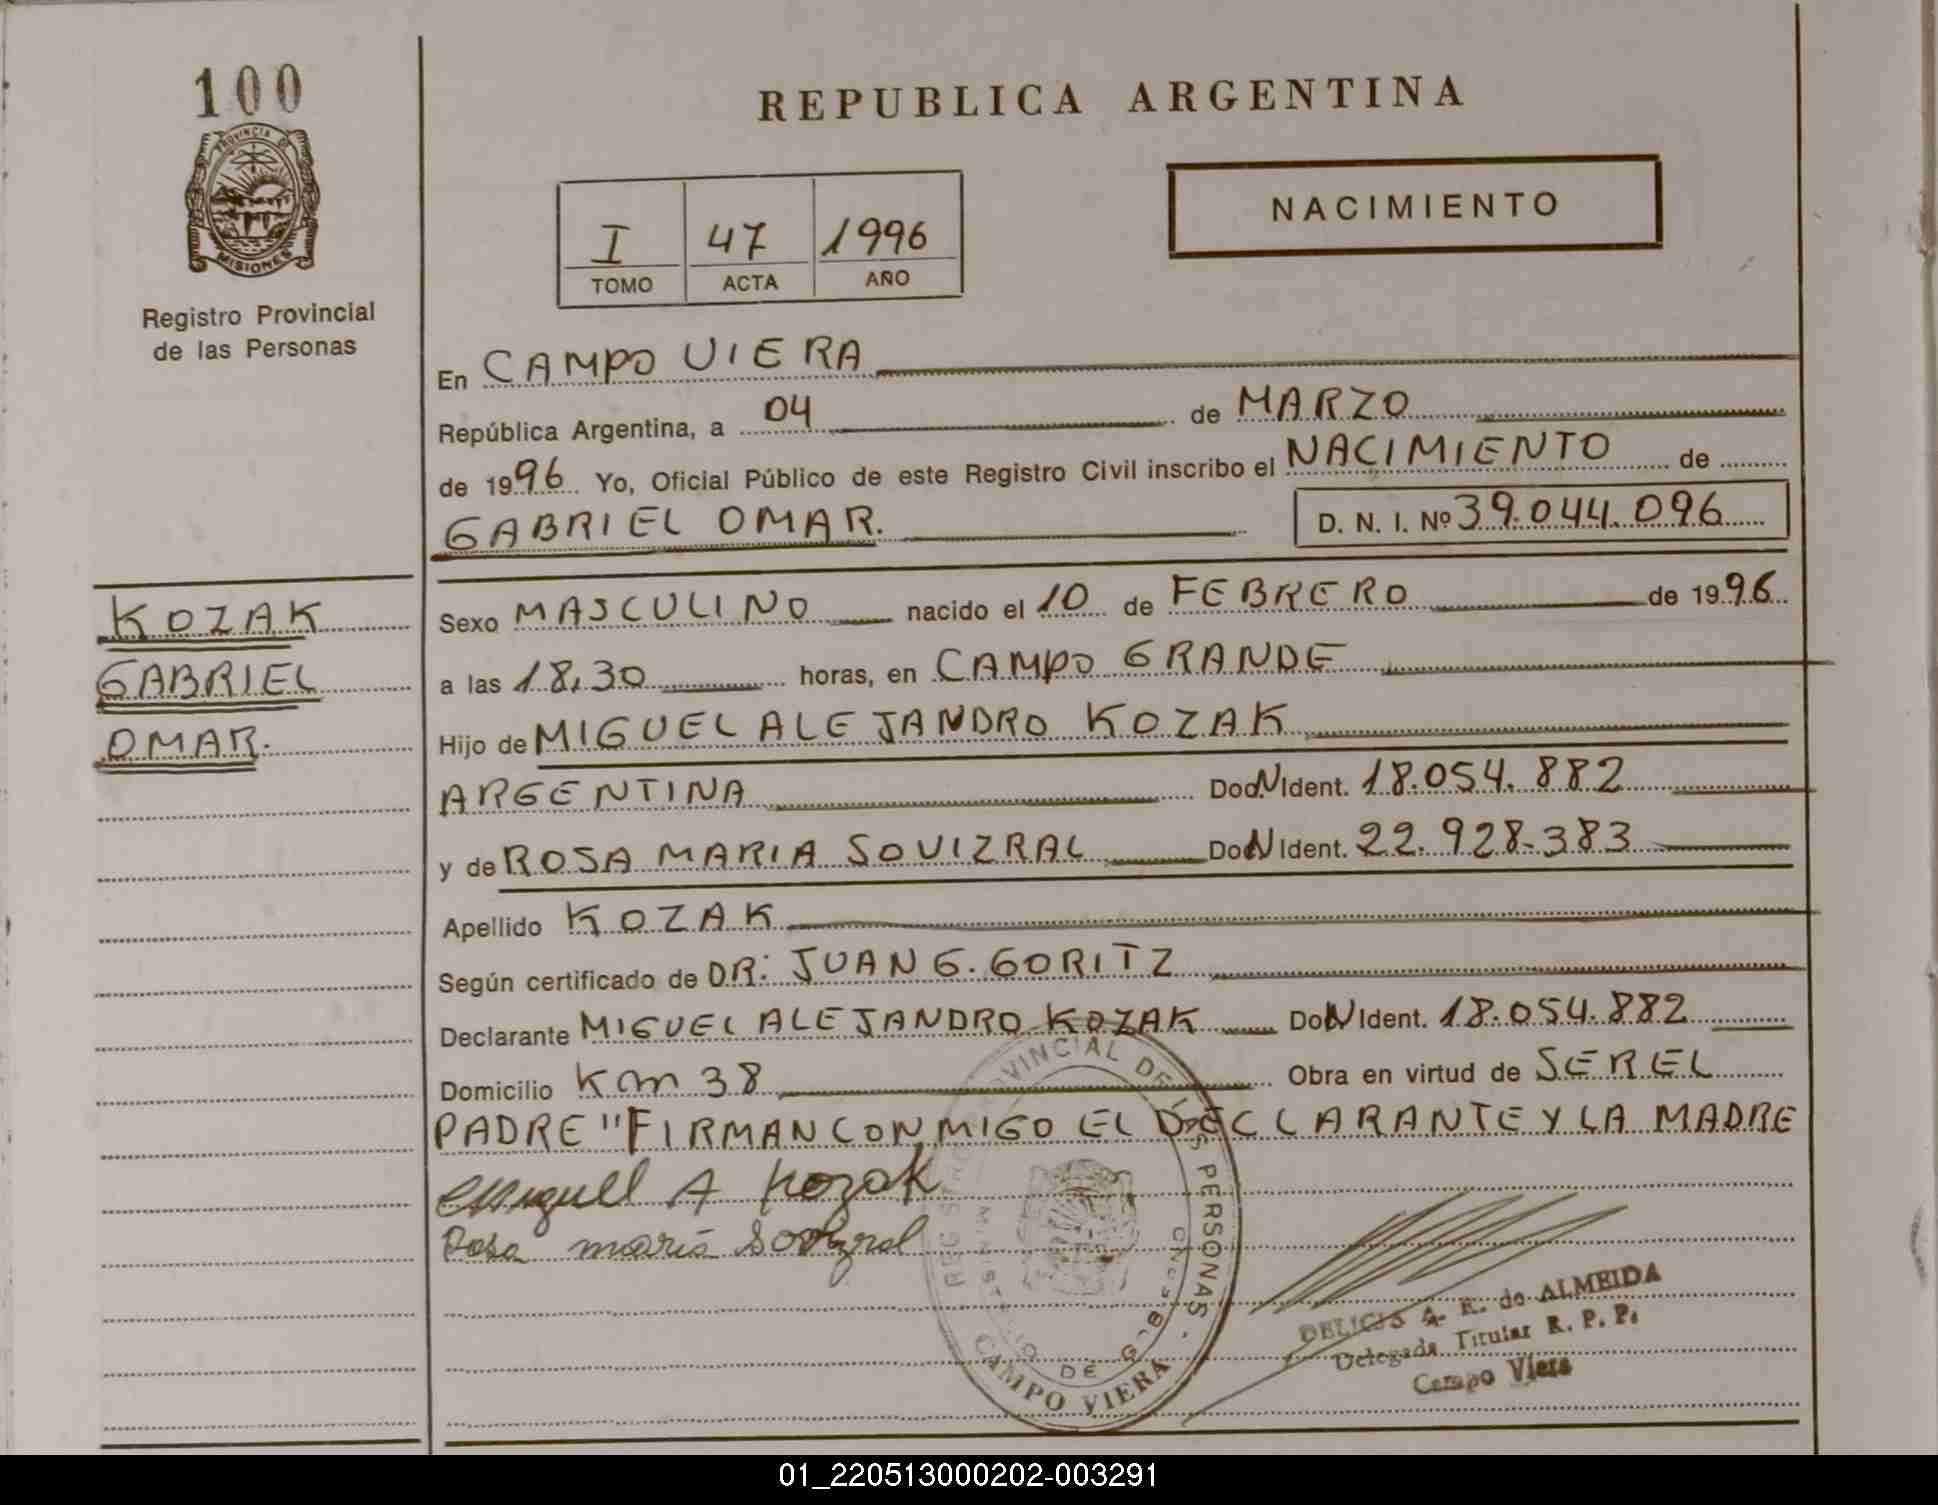 100
PROVINCIA DE
MISIONES
Registro Provincial
de las Personas
KOZAK
GABRIEL
OMAR.
REPUBLICA ARGENTINA
I 47 1996
TOMO ACTA AÑO
NACIMIENTO
En CAMPO VIERA
República Argentina, a 04 de MARZO
de 1996 Yo, Oficial Público de este Registro Civil inscribo el NACIMIENTO de
GABRIEL OMAR. D. N. I. Nº 39.044.096
Sexo MASCULINO nacido el 10 de FEBRERO de 1996
a las 18,30 horas, en CAMPO GRANDE
Hijo de MIGUEL ALEJANDRO KOZAK
ARGENTINA Doc.N Ident. 18.054.882
y de ROSA MARIA SOVIZRAL DoN Ident. 22.928.383
Apellido KOZAK
Según certificado de DR: JUAN G. GORITZ
Declarante MIGUEL ALEJANDRO KOZAK DoN Ident. 18.054.882
Domicilio Km 38 Obra en virtud de SER EL
PADRE "FIRMAN CONMIGO EL DECLARANTE Y LA MADRE
Miguel A Kozak
Rosa maria Sovizral
PROVINCIAL DE LAS PERSONAS
MINISTERIO DE GOB
CAMPO VIERA
DELICIS A. E. de ALMEIDA
Delegada Titular R. P. P.
Campo Viera
01_220513000202-003291